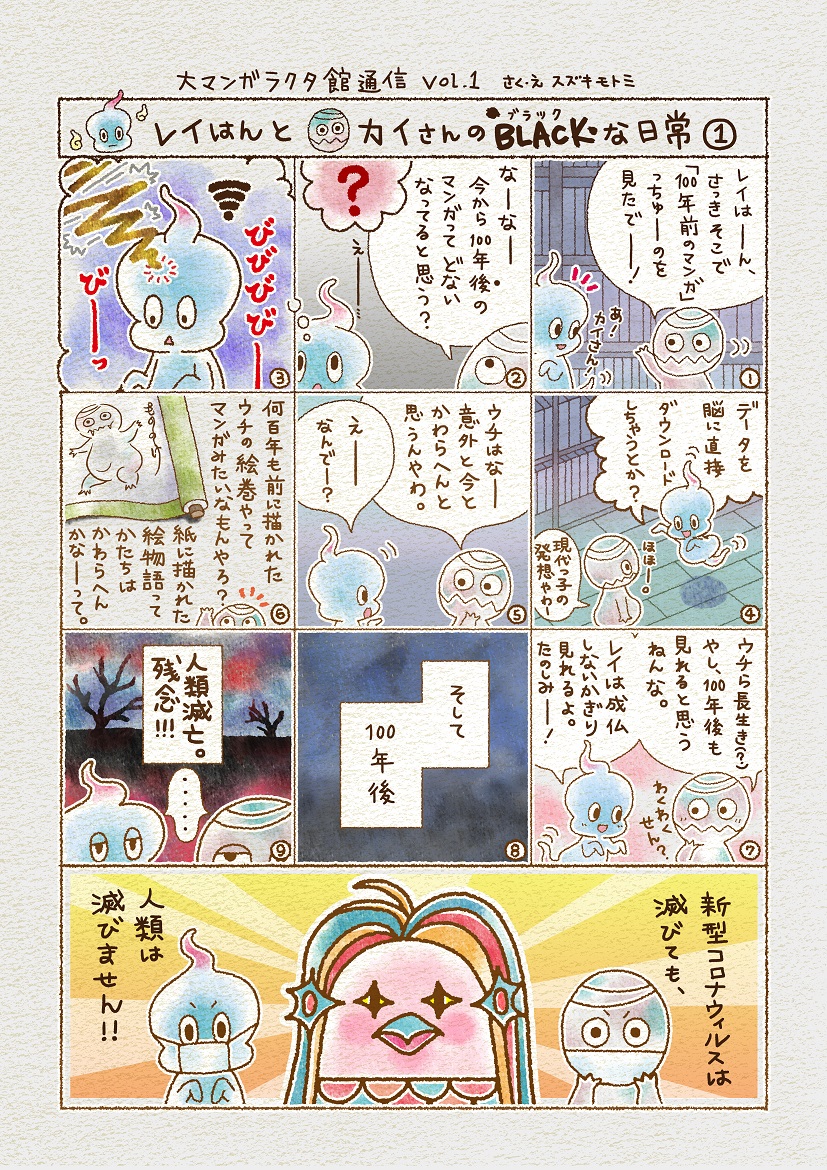 大マンガラクタ館通信 VOL.1 さく・え スズキモトミ
レイはんとカイさんの BLACK な日常 ①
ブラック
レイはーん、
さっきそこで
「100年前のマンガ」
っちゅーのを
見たでー!
あ!
カイさん!
①
なーなー
今から100年後の
マンガってどない
なってると思う?
?
えー…
②
びびびびー
びーっ
③
データを
脳に直接
ダウンロード
しちゃうとか?
ほほー。
現代っ子の
発想やわー
④
ウチはなー
意外と今と
かわらへんと
思うんやわ。
えー
なんでー?
⑤
何百年も前に描かれた
ウチの絵巻やって
マンガみたいなもんやろ?
紙に描かれた
絵物語って
かたちは
かわらへん
かなーって。
⑥
ウチら長生き(?)
やし、100年後も
見れると思う
ねんな。
レイは成仏
しないかぎり
見れるよ。
たのしみー!
わくわく
せん?
⑦
そして
100
年
後
⑧
人類滅亡。
残念!!!
・・・・・
⑨
新型コロナウィルスは
滅びても、
人類は
滅びません!!